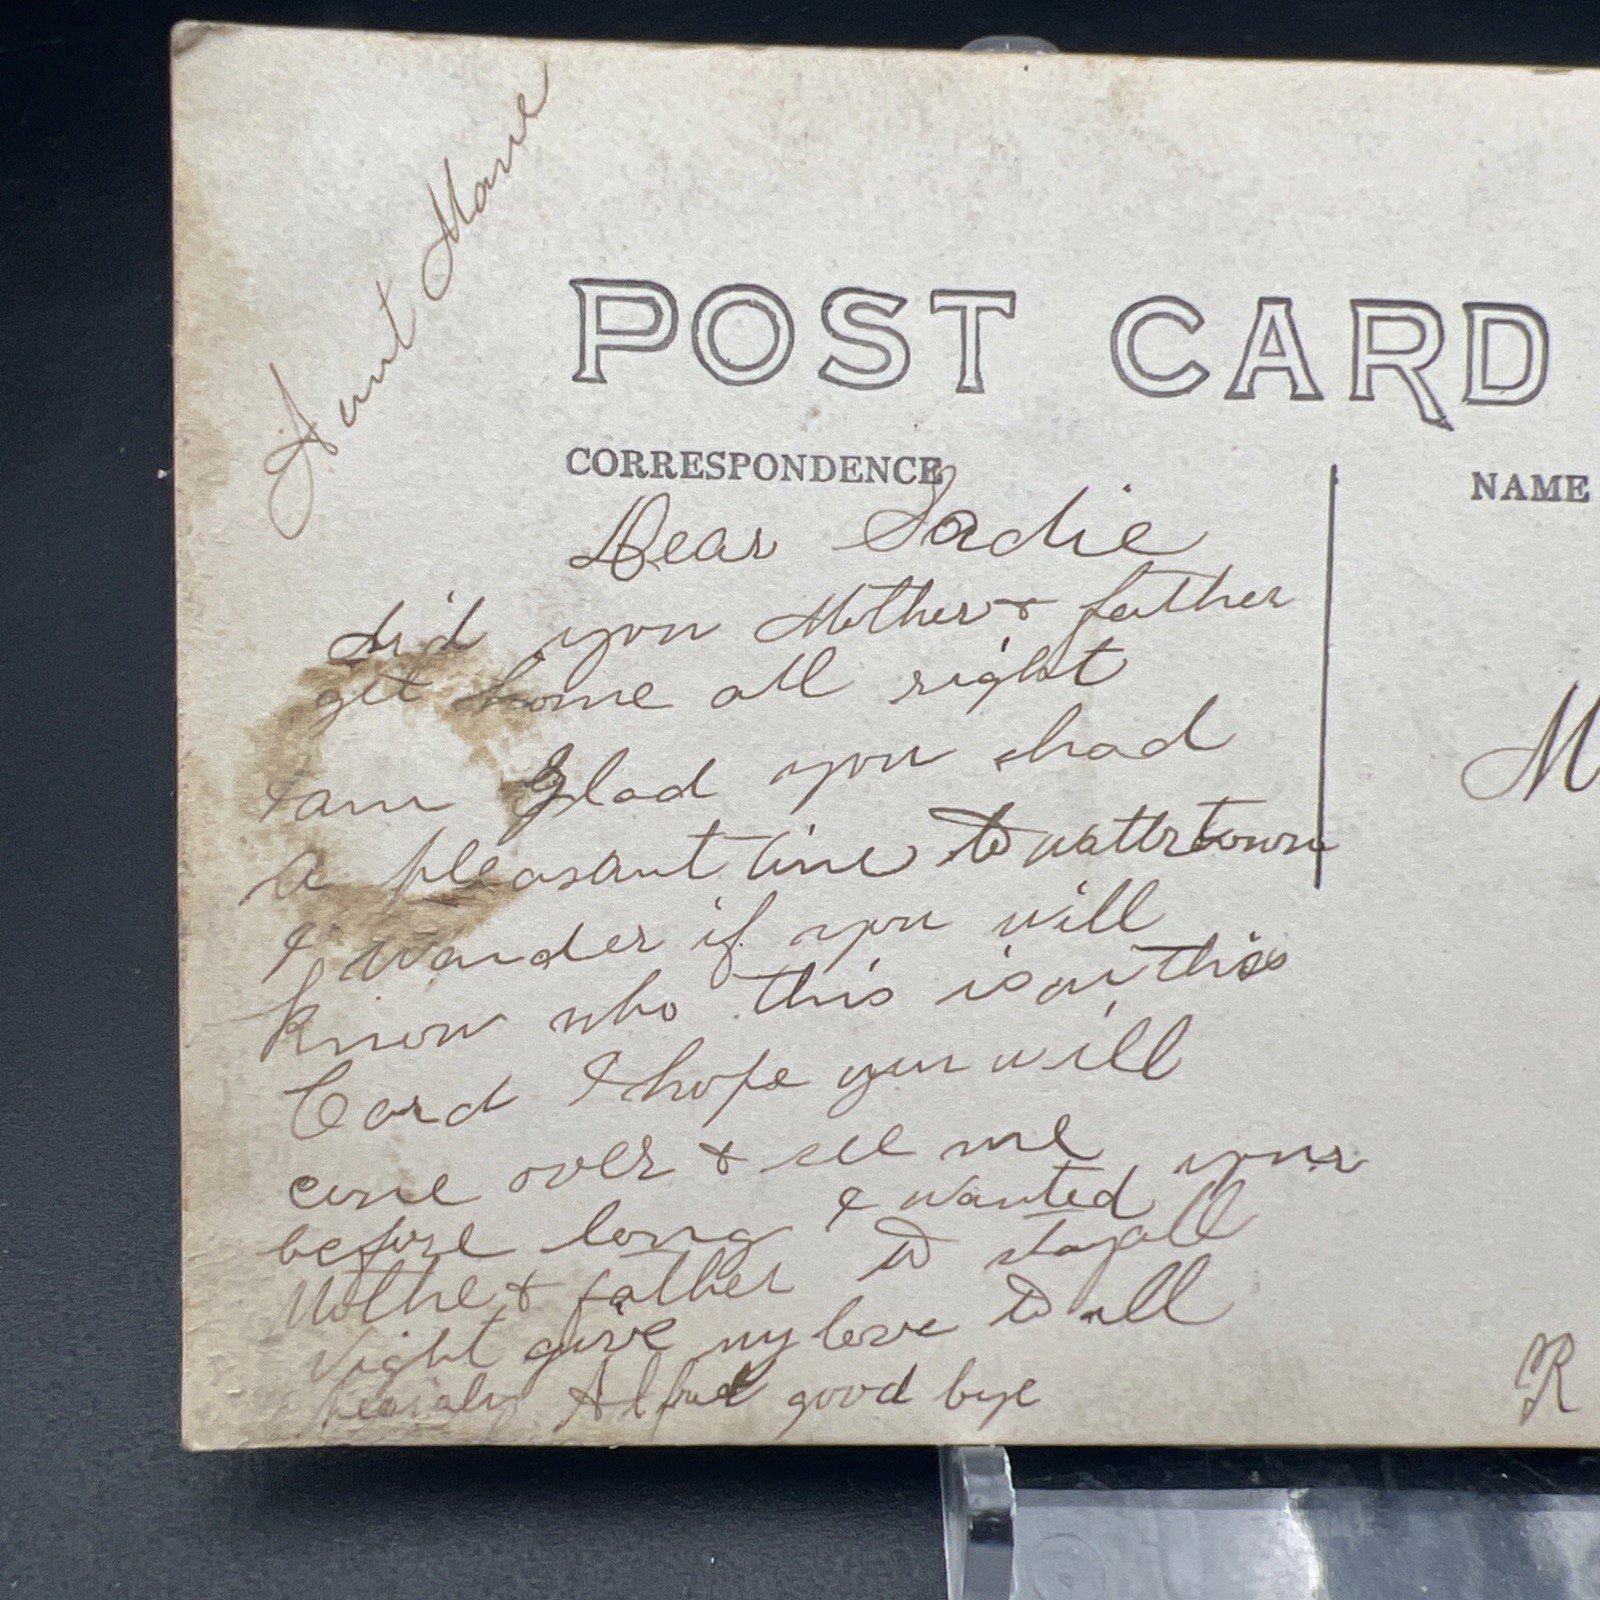 Aunt Marie
POST CARD
CORRESPONDENCE
NAME
Dear Sadie
did you Mother & father
get home all right
I am Glad you had
a pleasant time to wattertown
I wander if you will
know who this is on this
Card I hope you will
come over & see me
before long I wanted your
Mothe & father to stay all
Night give my love to all
Alfred good bye
M
R